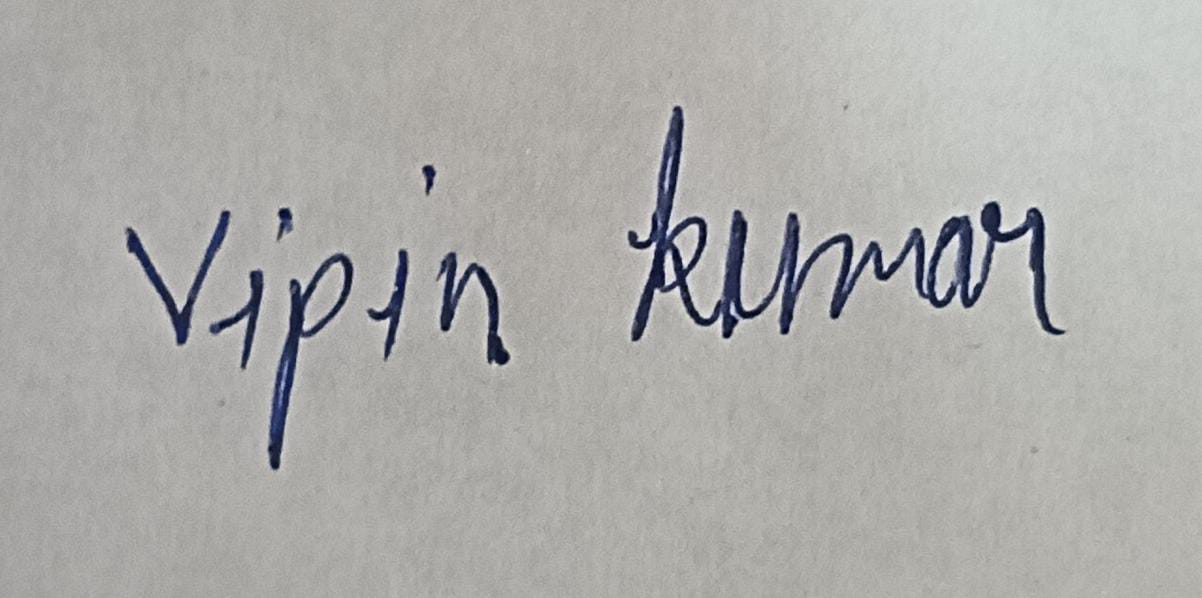 Vipin kumar